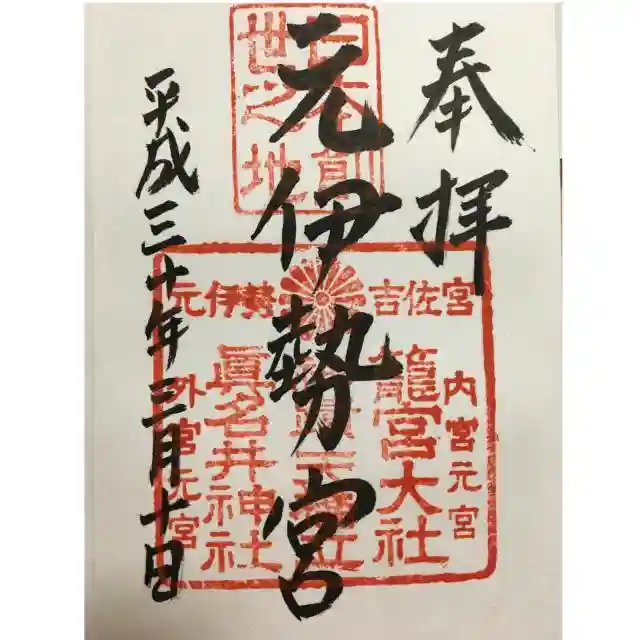 奉拝
元伊勢宮
平成三十年三月十日
世之地
吉佐宮
元伊勢
内宮元宮
籠宮大社
眞名井神社
外宮元宮